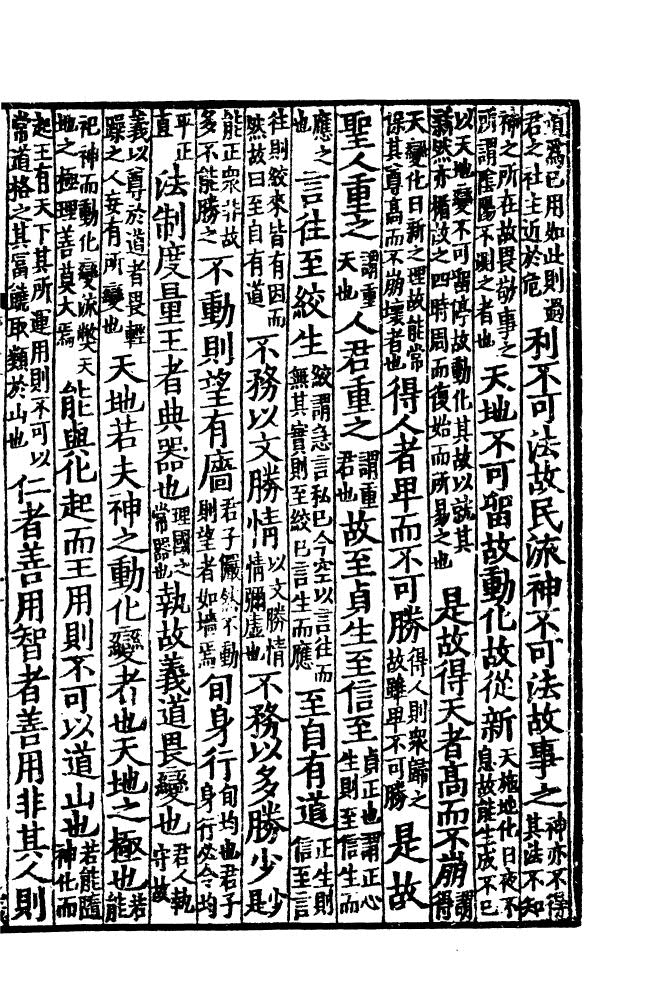 爲已用如此則過君之社主近於危利不可法故民流神不可法故事之神亦不得其法不知
神之所在故畏敬事之所謂陰陽不測之者也天地不可留故動化故從新天施地化日夜不息故能生成不已
以天地變不可留停故動化其故以就其新然亦循汝之四時周而復始而所易之也是故得天者高而不崩謂得
天變化日新之理故能常保其尊高而不崩壞者也得人者卑而不可勝得人則衆歸之故雖卑不可勝是故
聖人重之謂重天也人君重之謂重君也故至貞生至信至貞正也謂正心生則至信生而
應之也言往至絞生絞謂急言私已今空以言往而無其實則至絞已言生而應至自有道正生則信至言
往則絞來皆有因而然故曰至自有道不務以文勝情以文勝情情彌虛也不務以多勝少少是
能正衆非故多不能勝之不動則望有廧君子儼然不動則望者如墻焉旬身行旬均也君子身行必令均
平正直法制度量王者典器也理國之常器也執故義道畏變也君人執守故
義以尊於道者畏輕躁之人妄有所變也天地若夫神之動化變者也天地之極也若能
祀神而動化變流弊天地之極理善莫大焉能與化起而王用則不可以道山也若能隨神化而
起王有天下其所運用則不可以常道格之其富饒取類於山也仁者善用智者善用非其人則